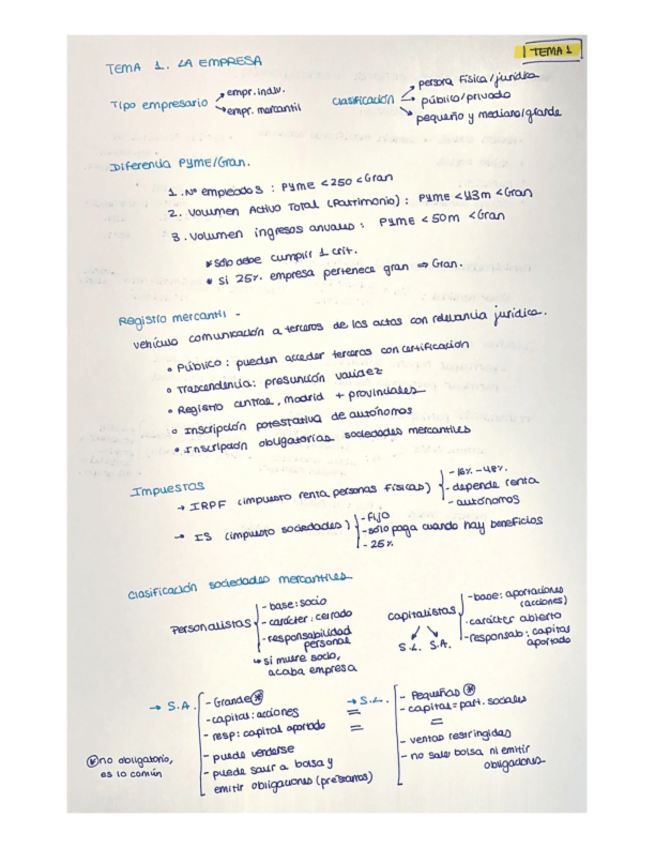 TEMA 1
TEMA 1. LA EMPRESA
Tipo empresario
empr. indiv.
empr. mercantil
clasificación
persona física/jurídica
público/privado
pequeño y mediano/grande
Diferencia PYME/Gran.
1. Nº empleados : PYME < 250 < Gran
2. Volumen Activo Total (Patrimonio) : PYME < 43m < Gran
3. Volumen ingresos anuales : PYME < 50m < Gran
* sólo debe cumplir 1 crit.
* si 25% empresa pertenece gran ⇒ Gran.
Registro mercantil -
vehículo comunicación a terceros de los actos con relevancia jurídica.
• Público : pueden acceder terceros con certificación
• Trascendencia : presunción validez
• Registro central, madrid + provinciales
• Inscripción potestativa de autónomos
• Inscripción obligatorias sociedades mercantiles
Impuestos
→ IRPF (impuesto renta personas físicas)
- 18% - 48%.
- depende renta
- autónomos
→ IS (impuesto sociedades)
- Fijo
- sólo paga cuando hay beneficios
- 25%
Clasificación sociedades mercantiles.
Personalistas
- base : socio
- carácter : cerrado
- responsabilidad personal
↳ si muere socio,
acaba empresa
capitalistas
S.L. S.A.
- base : aportaciones
(acciones)
- carácter abierto
- responsab : capital
aportado
→ S.A.
- Grande *
- capital : acciones
- resp : capital aportado
- puede venderse
- puede salir a bolsa y
emitir obligaciones (préstamos)
→ S.L.
- Pequeñas *
- capital = part. sociales
=
- ventas restringidas
- no sale bolsa ni emitir
obligaciones
=
=
* no obligatorio,
es lo común